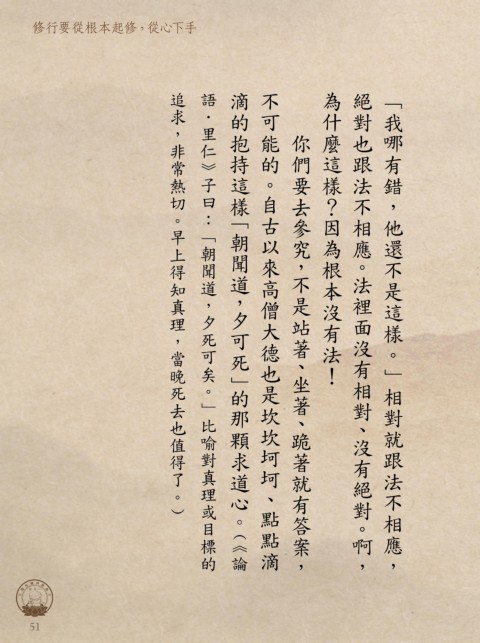 修行要從根本起修，從心下手
「我哪有錯，他還不是這樣。」相對就跟法不相應，
絕對也跟法不相應。法裡面沒有相對、沒有絕對。啊，
為什麼這樣？因為根本沒有法！
你們要去參究，不是站著、坐著、跪著就有答案，
不可能的。自古以來高僧大德也是坎坎坷坷、點點滴
滴的抱持這樣「朝聞道，夕可死」的那顆求道心。（《論
語．里仁》子曰：「朝聞道，夕死可矣。」比喻對真理或目標的
追求，非常熱切。早上得知真理，當晚死去也值得了。）
51